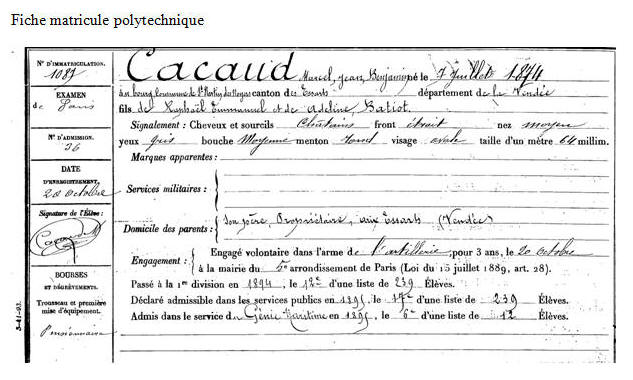 Fiche matricule polytechnique
N° D'IMMATRICULATION.
1087
EXAMEN
de Paris
N° D'ADMISSION.
26
DATE
D'ENREGISTREMENT.
20 octobre
Signature de l'Élève :
Cacaud
BOURSES
ET DÉGRÈVEMENTS.
Trousseau et première
mise d'équipement.
Pensionnaire
3-11-93.
Cacaud Marcel, Jean, Benjamin né le 7 Juillet 1874
au bourg, commune de St Martin des Noyers canton des Essarts département de la Vendée
fils de Raphaël Emmanuel et de Adeline, Batiot.
Signalement : Cheveux et sourcils Châtains front étroit nez moyen
yeux gris bouche Moyenne menton rond visage ovale taille d'un mètre 64 millim.
Marques apparentes :
Services militaires :
Domicile des parents : Son père, Propriétaire, aux Essarts (Vendée)
Engagement : Engagé volontaire dans l'arme de l'artillerie, pour 3 ans, le 20 octobre
à la mairie du 5e arrondissement de Paris (Loi du 15 juillet 1889, art. 28).
Passé à la 1re division en 1894, le 12e d'une liste de 239 Élèves.
Déclaré admissible dans les services publics en 1895, le 17e d'une liste de 239 Élèves.
Admis dans le service du Génie Maritime en 1895, le 6e d'une liste de 12 Élèves.